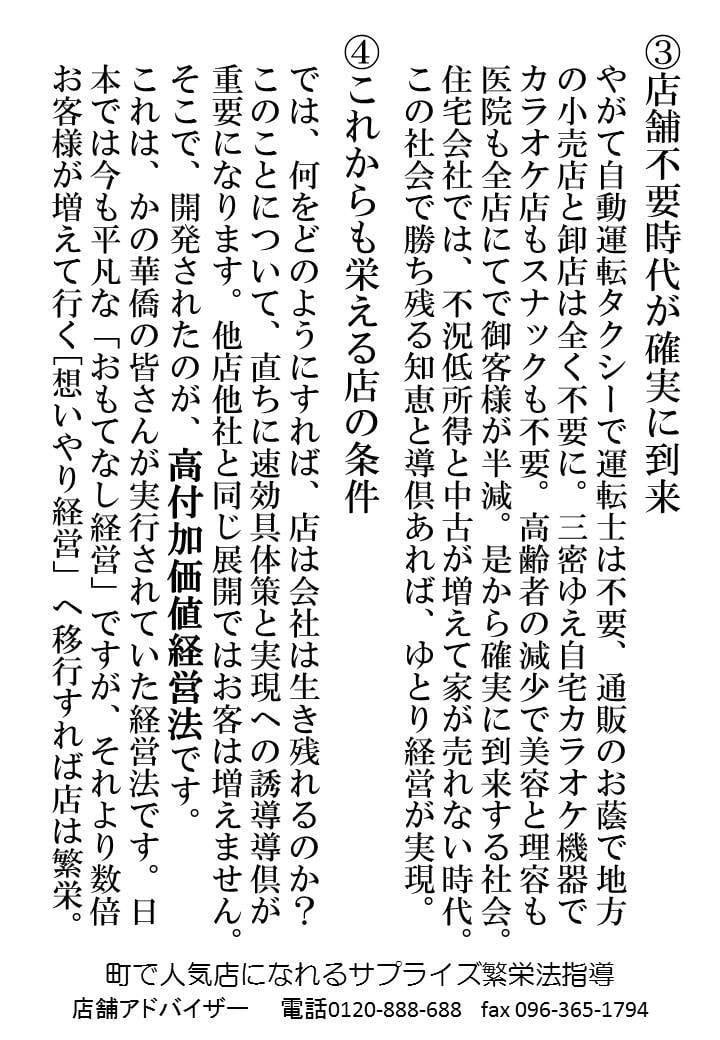 ③店舗不要時代が確実に到来
やがて自動運転タクシーで運転士は不要、通販のお蔭で地方
の小売店と卸店は全く不要に。三密ゆえ自宅カラオケ機器で
カラオケ店もスナックも不要。高齢者の減少で美容と理容も
医院も全店にてで御客様が半減。是から確実に到来する社会。
住宅会社では、不況低所得と中古が増えて家が売れない時代。
この社会で勝ち残る知恵と導倶あれば、ゆとり経営が実現。
④これからも栄える店の条件
では、何をどのようにすれば、店は会社は生き残れるのか？
このことについて、直ちに速効具体策と実現への誘導導倶が
重要になります。他店他社と同じ展開ではお客は増えません。
そこで、開発されたのが、高付加価値経営法です。
これは、かの華僑の皆さんが実行されていた経営法です。日
本では今も平凡な「おもてなし経営」ですが、それより数倍
お客様が増えて行く[想いやり経営」へ移行すれば店は繁栄。
町で人気店になれるサプライズ繁栄法指導
店舗アドバイザー 電話0120-888-688 fax 096-365-1794